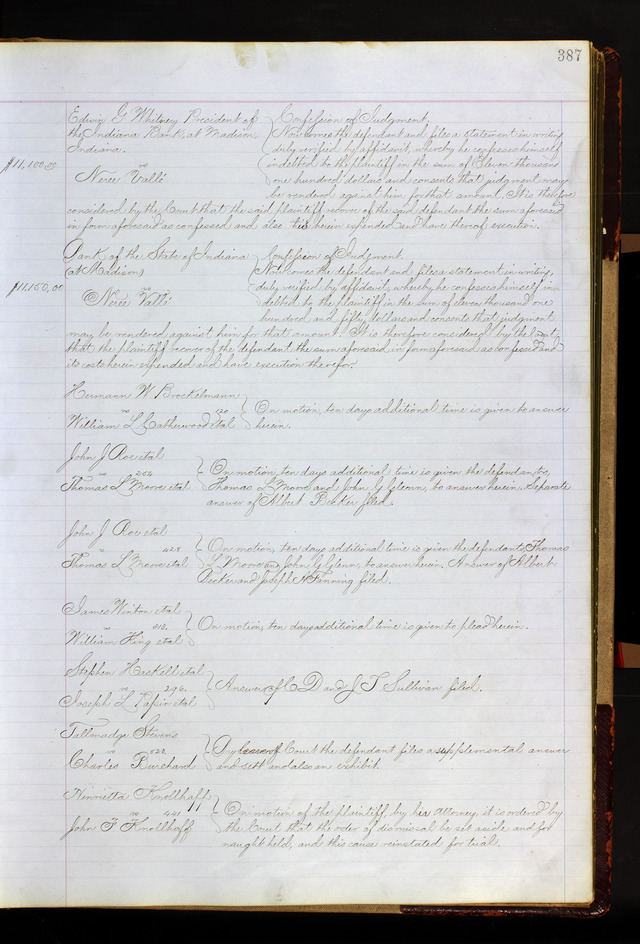 387
Edwin G Whitney President of } Confession of Judgment.
the Indiana Bank, at Madison, Now comes the defendant and files a statement in writing
Indiana. duly verified by affidavit, whereby he confesses himself
$11,100.00 indebted to the plaintiff in the sum of Eleven thousand
vs
Nerée Vallé one hundred dollars and consents that judgment may
be rendered against him for that amount. It is therefore
considered by the Court that the said plaintiff recover of the said defendant the sum aforesaid
in form aforesaid as confessed and also his herein expended and have thereof execution.
Bank of the State of Indiana } Confession of Judgment.
(at Madison) Now comes the defendant and files a statement in writing,
$11,150.00 duly verified by affidavit, whereby he confesses himself in-
vs
Nerée Vallé debted to the plaintiff in the sum of eleven thousand one
hundred and fifty dollars and consents that judgment
may be rendered against him for that amount. It is therefore considered by the Court,
that the plaintiff recover of the defendant the sum aforesaid in form aforesaid as confessed and
its costs herein expended and have execution therefor.
Hermann W Brockelmann
vs 120 } On motion, ten days additional time is given to answer
William L Catherwood etal herein.
John J Roe etal
vs 254 } On motion, ten days additional time is given the defendants,
Thomas L Moore etal Thomas L Moore and John G Glenn, to answer herein. Separate
answer of Albert Becker filed.
John J Roe etal
vs 428 } On motion, ten days additional time is given the defendants Thomas
Thomas L Moore etal L Moore and John G Glenn, to answer herein. Answer of Albert
Becker and Joseph H Fanning filed.
James Winton etal
vs 513. } On motion, ten days additional time is given to plead herein.
William King etal
Stephen Haskell etal
vs 296. } Answer of C D and J T Sullivan filed.
Joseph L Papin etal
Tallmadge Stevens
vs 528. } By leave of Court the defendant files a supplemental answer
Charles Burchard and sett and also an exhibit.
Henrietta Knollhoff
vs 441 } On motion of the plaintiff by her Attorney, it is ordered by
John F Knollhoff the Court that the order of dismissal be set aside and for
naught held, and this cause reinstated for trial.